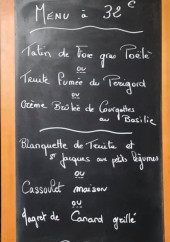 MENU à 32 €
Tatin de Foie gras Poêlé
ou
Truite Fumée du Périgord
ou
Crème Brûlée de Courgettes
au Basilic
Blanquette de Truite et
St Jacques aux petits légumes
ou
Cassoulet maison
ou
Magret de Canard grillé